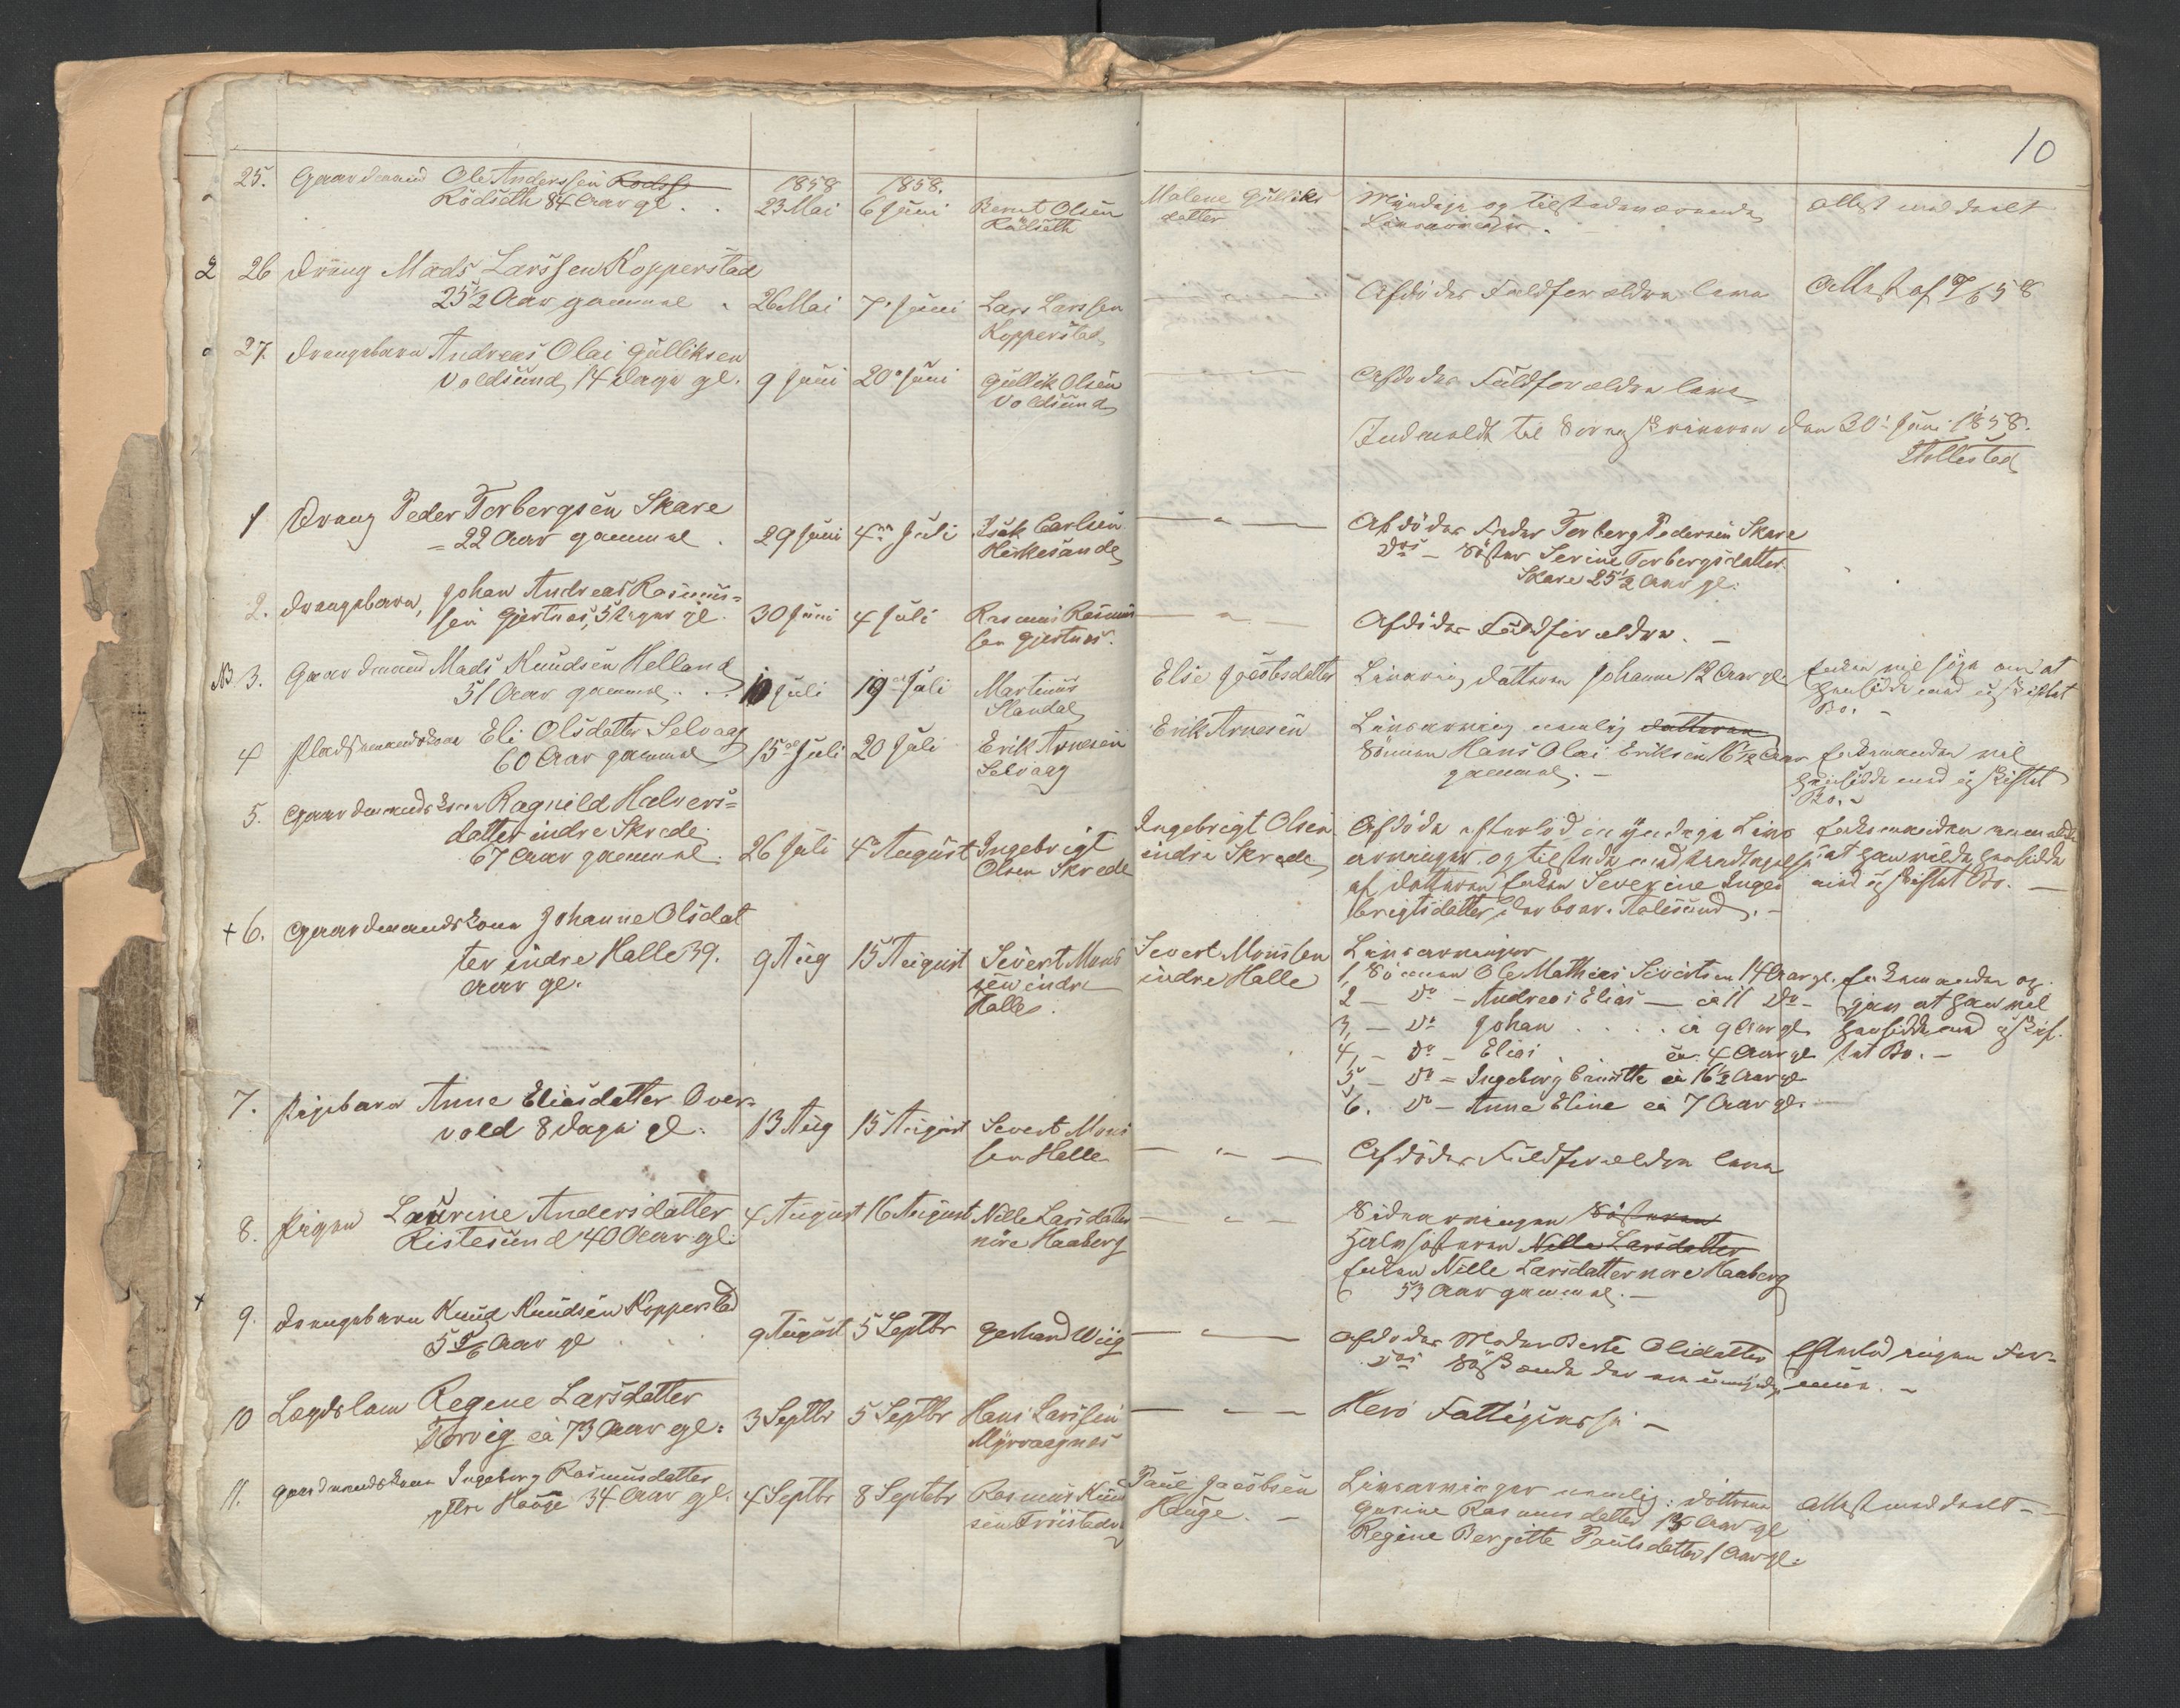 10
25. Gaardmand Ole Anderssen Rodse
Rödseth 84 Aar gl. . .
1858
23 Mai
1858.
6 Juni
Bernt Olsen
Rödseth
Malene Gulliks
datter
Myndige og tilstedeværende
Livsarvinger.
Attest meddeelt
2 26 Dreng Mads Larssen Kopperstad
25½ Aar gammel .
26 Mai
7 Juni
Lars Larssen
Kopperstad
Afdödes Fuldforældre leve
Attest af 7/6 58
27. Drengebarn Andreas Olai Gulliksen
Voldsund, 14 Dage gl.
9 Juni
20 Juni
Gullik Olsen
Voldsund
Afdödes Fuldforældre leve
Indmeldt til Sorenskriveren den 30 Juni 1858.
1 Dreng Peder Torbergsen Skare
22 Aar gammel .
29 Juni
4 Juli
Isak Carlsen
Kirkesande
Afdödes Fader Torberg Pedersen Skare
Dos - Söster Serine Torbergsdatter
Skare 25½ Aar gl.
2. Drengebarn, Johan Andreas Rasmus-
sen Gjertnes, 5 Dage gl.
30 Juni
4 Juli
Rasmus Rasmus
sen Gjertnes.
Afdödes Fuldforældre. -
NB 3. Gaardmand Mads Knudsen Helland
51 Aar gammel . .
10 Juli
19 Juli
Martinus
Standal
Elie Jacobsdatter
Livsarving datteren Johanne 12 Aar gl.
Enken vil söge om at
hensidde med uskiftet
Bo. -
4 Pladsmandskone Eli Olsdatter Selvaag
60 Aar gammel
15 Juli
20 Juli
Erik Arnesen
Selvaag
Erik Arnesen
Livsarving nemlig datteren
Sönnen Hans Olai Eriksen 16½ Aar
gammel. -
Enkemanden vil
hensidde med uskiftet
Bo. -
5. Gaardmandskone Ragnild Halvers-
datter indre Skrede
67 Aar gammel.
26 Juli
4 August
Ingebrigt
Olsen Skrede
Ingebrigt Olsen
indre Skrede
Afdöde efterlod myndige Livs
arvinger og tilstede med Undtagelse
af datteren Enken Severine Inge
brigtsdatter der boer i Aalesund. -
Enkemanden anmeldte
at han vilde hensidde
med uskiftet Bo. -
+ 6. Gaardmandskone Johanne Olsdat
ter indre Halle 39.
Aar gl.
9 Aug
15 August
Sivert Mons
sen indre
Halle.
Sivert Monssen
indre Halle
Livsarvinger
1, Sönnen Ole Mathias Sivertsen 14 Aar gl.
2 - Do - Andreas Elias - ca 11 Do -
3, - Do Johan . . . . ca 9 Aar gl
4, - Do - Elias . ca 4 Aar gl
5, - Do - Ingeborg Birgitte ca 16½ Aar gl
6. Do - Anne Eline ca 7 Aar gl.
Enkemanden op-
gav at han vil
hensidde med uskif-
tet Bo. -
7. Pigebarn Anne Eliasdatter Over-
vold 8 Dage gl.
13 Aug
15 August
Severt Mons
sen Helle
Afdödes Fuldforældre leve
8. Pigen Laurine Andersdatter
Ristesund 40 Aar gl.
4 August
16 August
Nille Larsdatter
nöre Haaberg
Sidearvingen Sösteren
Halvsösteren Nille Larsdatter
Enken Nille Larsdatter nöre Haaberg
53 Aar gammel. -
9. Drengebarn Knud Knudsen Kopperstad
5 5/6 Aar gl
9 August
5 Septbr
Gerhard Wiig
Afdödes Moder Berte Olsdatter
Dos Södskende der ere umyndige
Efterlod ingen For-
mue. -
10 Lægdslem Regine Larsdatter
Torvig ca 73 Aar gl.
3 Septbr
5 Septbr
Hans Larssen
Myrvaagnes
Herö Fattigkasse -
11. Gaardmandskone Ingeborg Rasmusdatter
ytre Hauge 34 Aar gl.
4 Septbr
8 Septbr
Rasmus Knud
sen
Paul Jacobsen
Hauge. -
Livsarvinger nemlig: döttrene
Gurine Rasmusdatter 15 Aar gl
Regine Bergitte Paulsdatter 1 Aar gl.
Attest meddeelt -